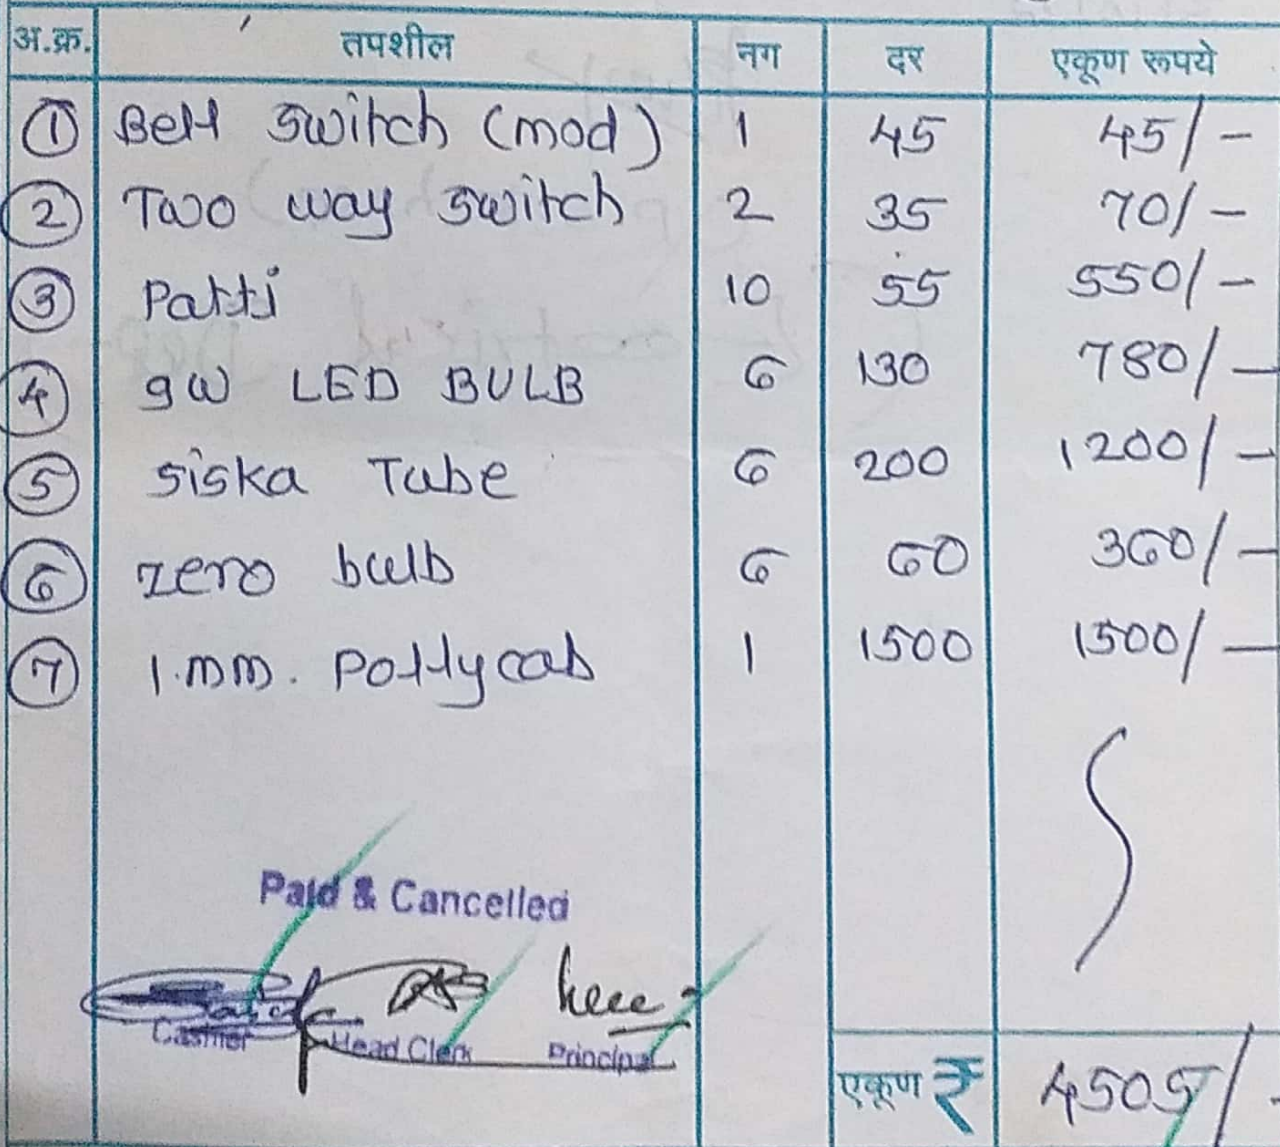 अ.क्र. तपशील नग दर एकूण रूपये
1 Bell switch (mod) 1 45 45/-
2 Two way switch 2 35 70/-
3 Patti 10 55 550/-
4 9w LED BULB 6 130 780/-
5 Siska Tube 6 200 1200/-
6 zero bulb 6 60 360/-
7 1.mm. Pollycab 1 1500 1500/-
Paid & Cancelled
Cashier Head Clerk Principal
एकूण ₹ 4505/-